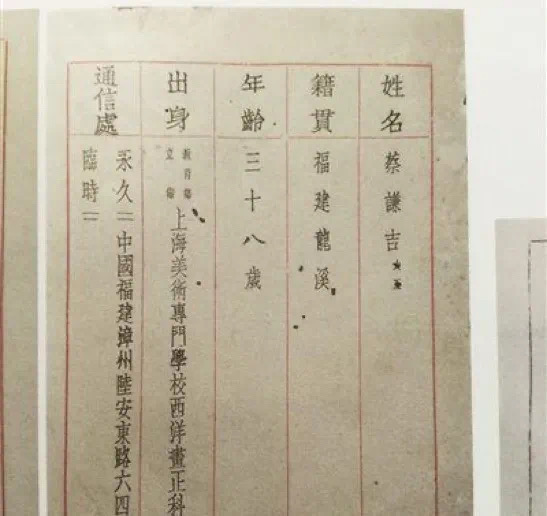 姓名 蔡謙吉
籍貫 福建龍溪
年齡 三十八歲
出身 教育部立案 上海美術專門學校西洋畫正科
通信處 永久 中國福建漳州陸安東路六四
臨時